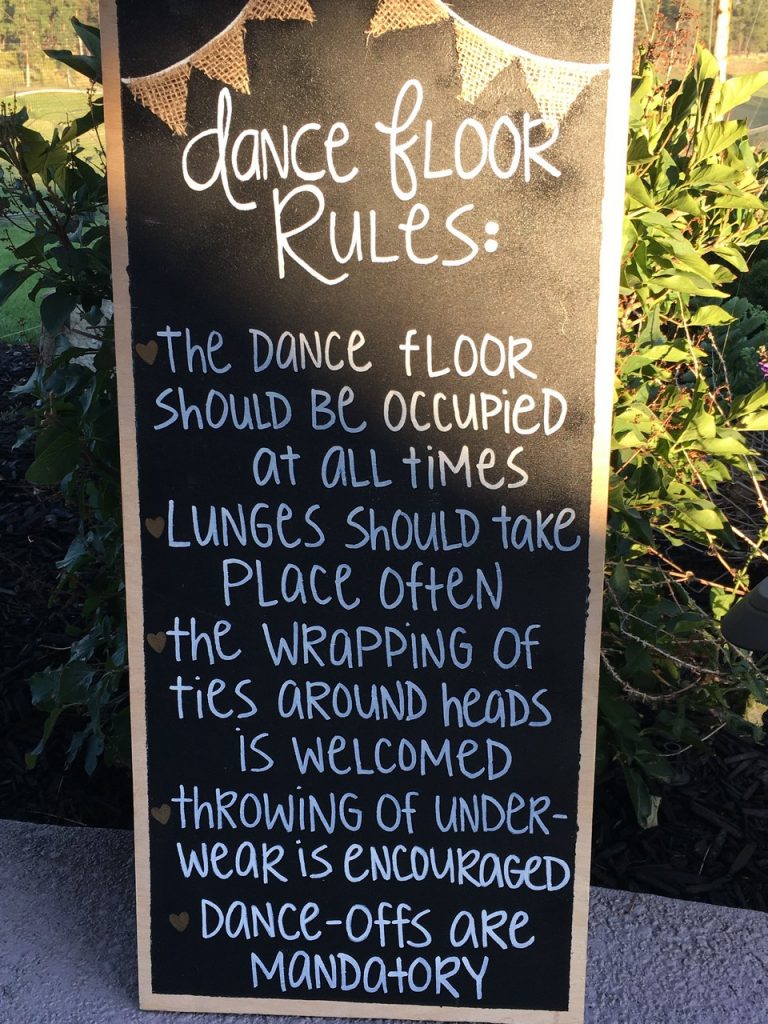 dance floor
Rules:
the dance floor
should be occupied
at all times
Lunges should take
place often
the wrapping of
ties around heads
is welcomed
throwing of under-
wear is encouraged
dance-offs are
mandatory